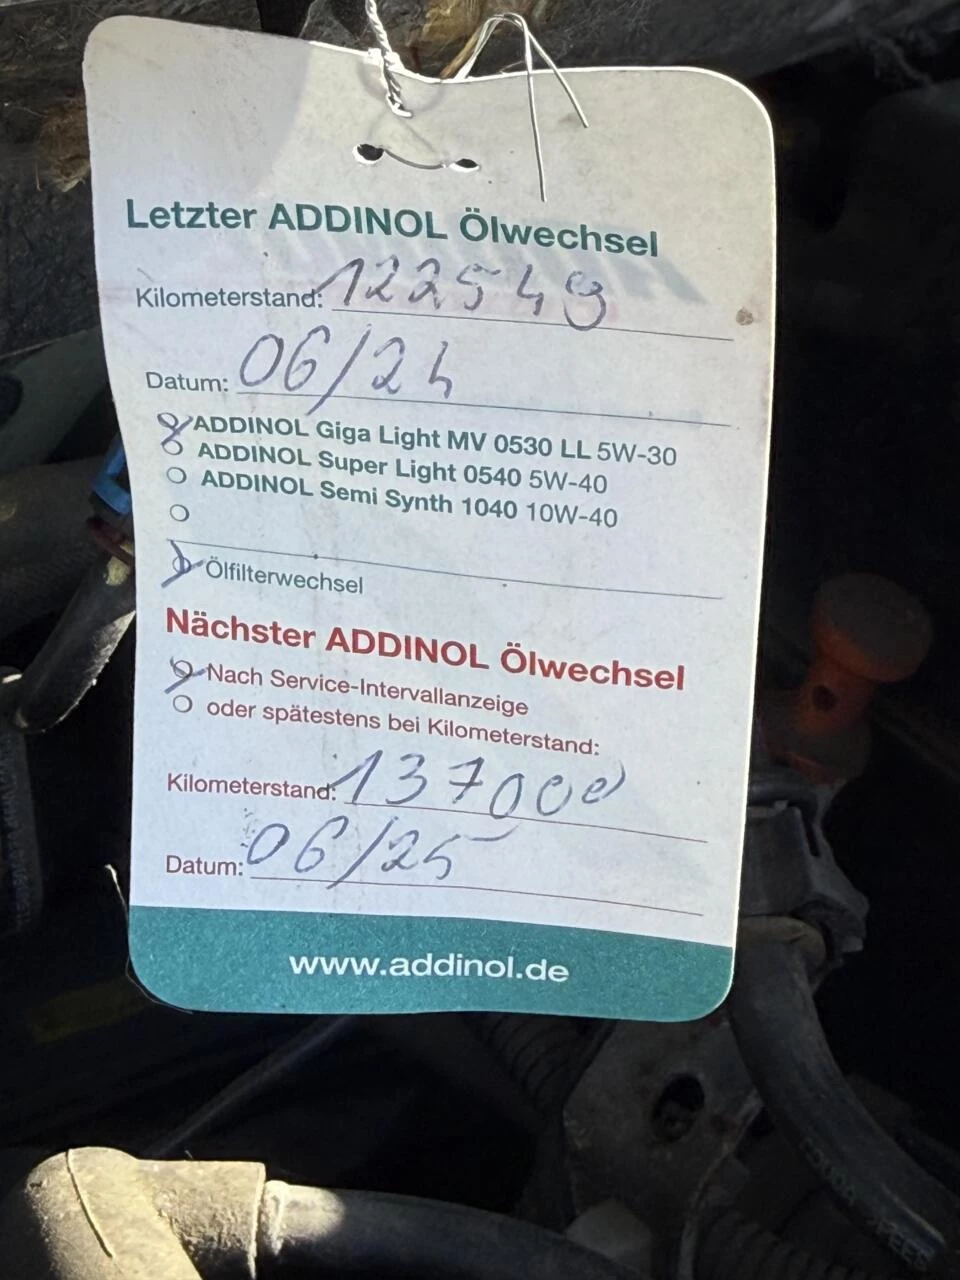 Letzter ADDINOL Ölwechsel
Kilometerstand: 122549
Datum: 06/24
ADDINOL Giga Light MV 0530 LL 5W-30
ADDINOL Super Light 0540 5W-40
ADDINOL Semi Synth 1040 10W-40
Ölfilterwechsel
Nächster ADDINOL Ölwechsel
Nach Service-Intervallanzeige
oder spätestens bei Kilometerstand:
Kilometerstand: 137000
Datum: 06/25
www.addinol.de